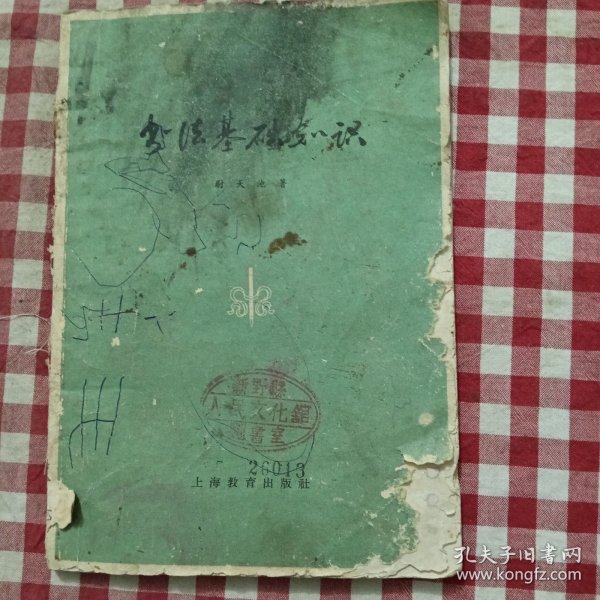 书法基础知识
尉天池著
新野縣
人民文化館
圖書室
26013
上海教育出版社
孔夫子旧书网
www.kongfz.com